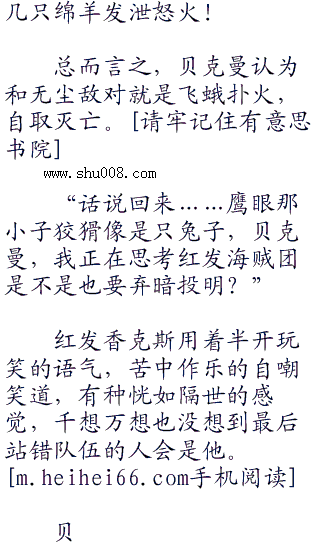 几只绵羊发泄怒火！
总而言之，贝克曼认为
和无尘敌对就是飞蛾扑火，
自取灭亡。[请牢记住有意思
书院]
www.shu008.com
“话说回来……鹰眼那
小子狡猾像是只兔子，贝克
曼，我正在思考红发海贼团
是不是也要弃暗投明？”
红发香克斯用着半开玩
笑的语气，苦中作乐的自嘲
笑道，有种恍如隔世的感
觉，千想万想也没想到最后
站错队伍的人会是他。
[m.heihei66.com手机阅读]
贝